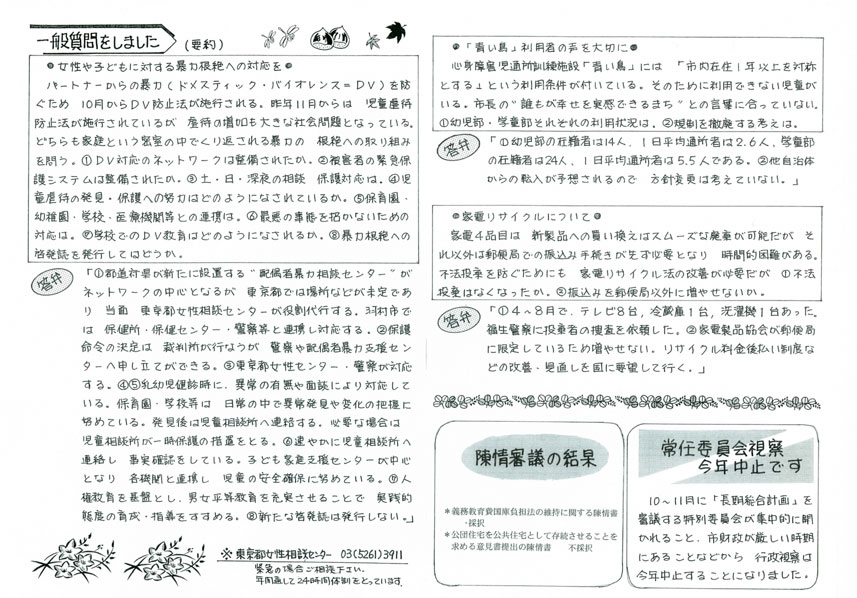 一般質問をしました (要約)
●女性や子どもに対する暴力根絶への対応を●
パートナーからの暴力(ドメスティック・バイオレンス=DV)を防
ぐため 10月からDV防止法が施行される。昨年11月からは 児童虐待
防止法が施行されているが 虐待の増加も大きな社会問題となっている。
どちらも家庭という密室の中でくり返される暴力の 根絶への取り組み
を問う。①DV対応のネットワークは整備されたか。②被害者の緊急保
護システムは整備されたか。③土・日・深夜の相談 保護対応は。④児
童虐待の発見・保護への努力はどのようになされているか。⑤保育園・
幼稚園・学校・医療機関等との連携は。⑥最悪の事態を招かないための
対応は。⑦学校でのDV教育はどのようになされるか。⑧暴力根絶への
啓発誌を発行してはどうか。
答弁
「①都道府県が新たに設置する“配偶者暴力相談センター”が
ネットワークの中心となるが 東京都では場所などが未定であ
り 当面 東京都女性相談センターが役割代行する。羽村市で
は 保健所・保健センター・警察等と連携し対応する。②保護
命令の決定は 裁判所が行なうが 警察や配偶者暴力支援セン
ターへ申し立てができる。③東京都女性センター・警察が対応
する。④⑤乳幼児健診時に、異常の有無や面談により対応して
いる。保育園・学校等は 日常の中で異常発見や変化の把握に
努めている。発見後は児童相談所へ連絡する。必要な場合は
児童相談所が一時保護の措置をとる。⑥速やかに児童相談所へ
連絡し 事実確認をしている。子ども家庭支援センターが中心
となり 各機関と連携し 児童の安全確保に努めている。⑦人
権教育を基盤とし、男女平等教育を充実させることで 実践的
態度の育成・指導をすすめる。⑧新たな啓発誌は発行しない。」
※東京都女性相談センター 03(5261)3911
緊急の場合ご相談下さい。
年間通して24時間体制をとっています。
●「青い鳥」利用者の声を大切に●
心身障害児通所訓練施設「青い鳥」には 「市内在住1年以上を対称
とする」という利用条件が付いている。そのために利用できない児童が
いる。市長の“誰もが幸せを実感できるまち”との言葉に合っていない。
①幼児部・学童部それぞれの利用状況は。②規制を撤廃する考えは。
答弁
「①幼児部の在籍者は14人、1日平均通所者は2.6人、学童部
の在籍者は24人、1日平均通所者は5.5人である。②他自治体
からの転入が予想されるので 方針変更は考えていない。」
●家電リサイクルについて●
家電4品目は 新製品への買い換えはスムーズな廃棄が可能だが そ
れ以外は郵便局での振込み手続きがぜひ必要となり 時間的困難がある。
不法投棄を防ぐためにも 家電リサイクル法の改善が必要だが ①不法
投棄はなくなったか。②振込みを郵便局以外に増やせないか。
答弁
「①4~8月で、テレビ8台，冷蔵庫1台，洗濯機1台あった。
福生警察に投棄者の捜査を依頼した。②家電製品協会が郵便局
に限定しているため増やせない。リサイクル料金後払い制度な
どの改善・見直しを国に要望して行く。」
陳情審議の結果
＊義務教育費国庫負担法の維持に関する陳情書
・採択
＊公団住宅を公共住宅として存続させることを
求める意見書提出の陳情書 不採択
常任委員会視察
今年中止です
10～11月に「長期総合計画」を
審議する特別委員会が集中的に開
かれること、市財政が厳しい時期
にあることなどから 行政視察は
今年中止することになりました。